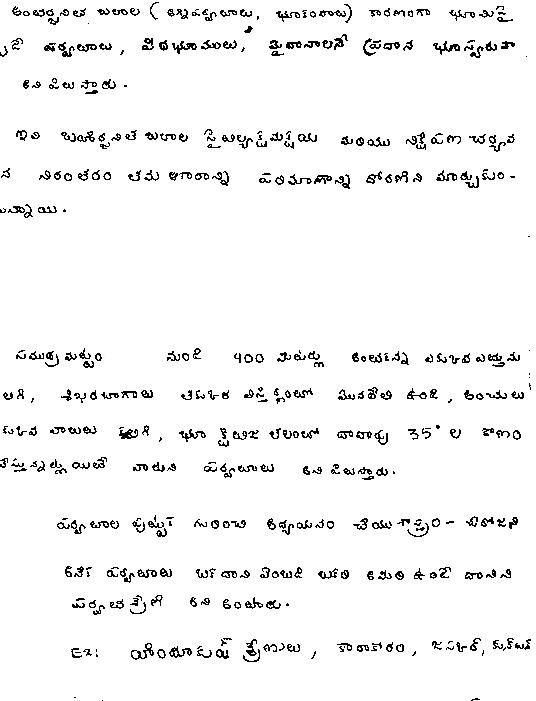 అంతర్జనిత బలాల ( అగ్నిపర్వతాలు, భూకంపాలు) కారణంగా భూమిపై
పర్వతాలు, పీఠభూములు, మైదానాలనే ప్రధాన భూస్వరూపా
అని పిలుస్తారు.
ఇవి బహిర్జనిత బలాల శైథిల్య క్రమక్షయ మరియు నిక్షేపణ చర్యల
న నిరంతరం తమ ఆకారాన్ని పరిమాణాన్ని మార్చుకుం-
టున్నాయి.
సముద్ర మట్టం నుండి 900 మీటర్ల కంటే ఎక్కువ ఎత్తును
కలిగి, శిఖరభాగాలు తక్కువ విస్తీర్ణంలో మొనదేలి ఉండి, అంచులు
ఎక్కువ వాలును కలిగి, భూ క్షితిజ తలంలో దాదాపు 35° ల కోణం
చేస్తున్నట్లయితే వాటిని పర్వతాలు అని పిలుస్తారు.
పర్వతాల పుట్టుక గురించి అధ్యయనం చేయు శాస్త్రం -
అనేక పర్వతాలు ఒకదాని వెంబడి ఒకటి అమరి ఉంటే దానిని
పర్వత శ్రేణి అని అంటారు.
Ex: హిందూకుష్ శ్రేణులు, కారాకోరం,